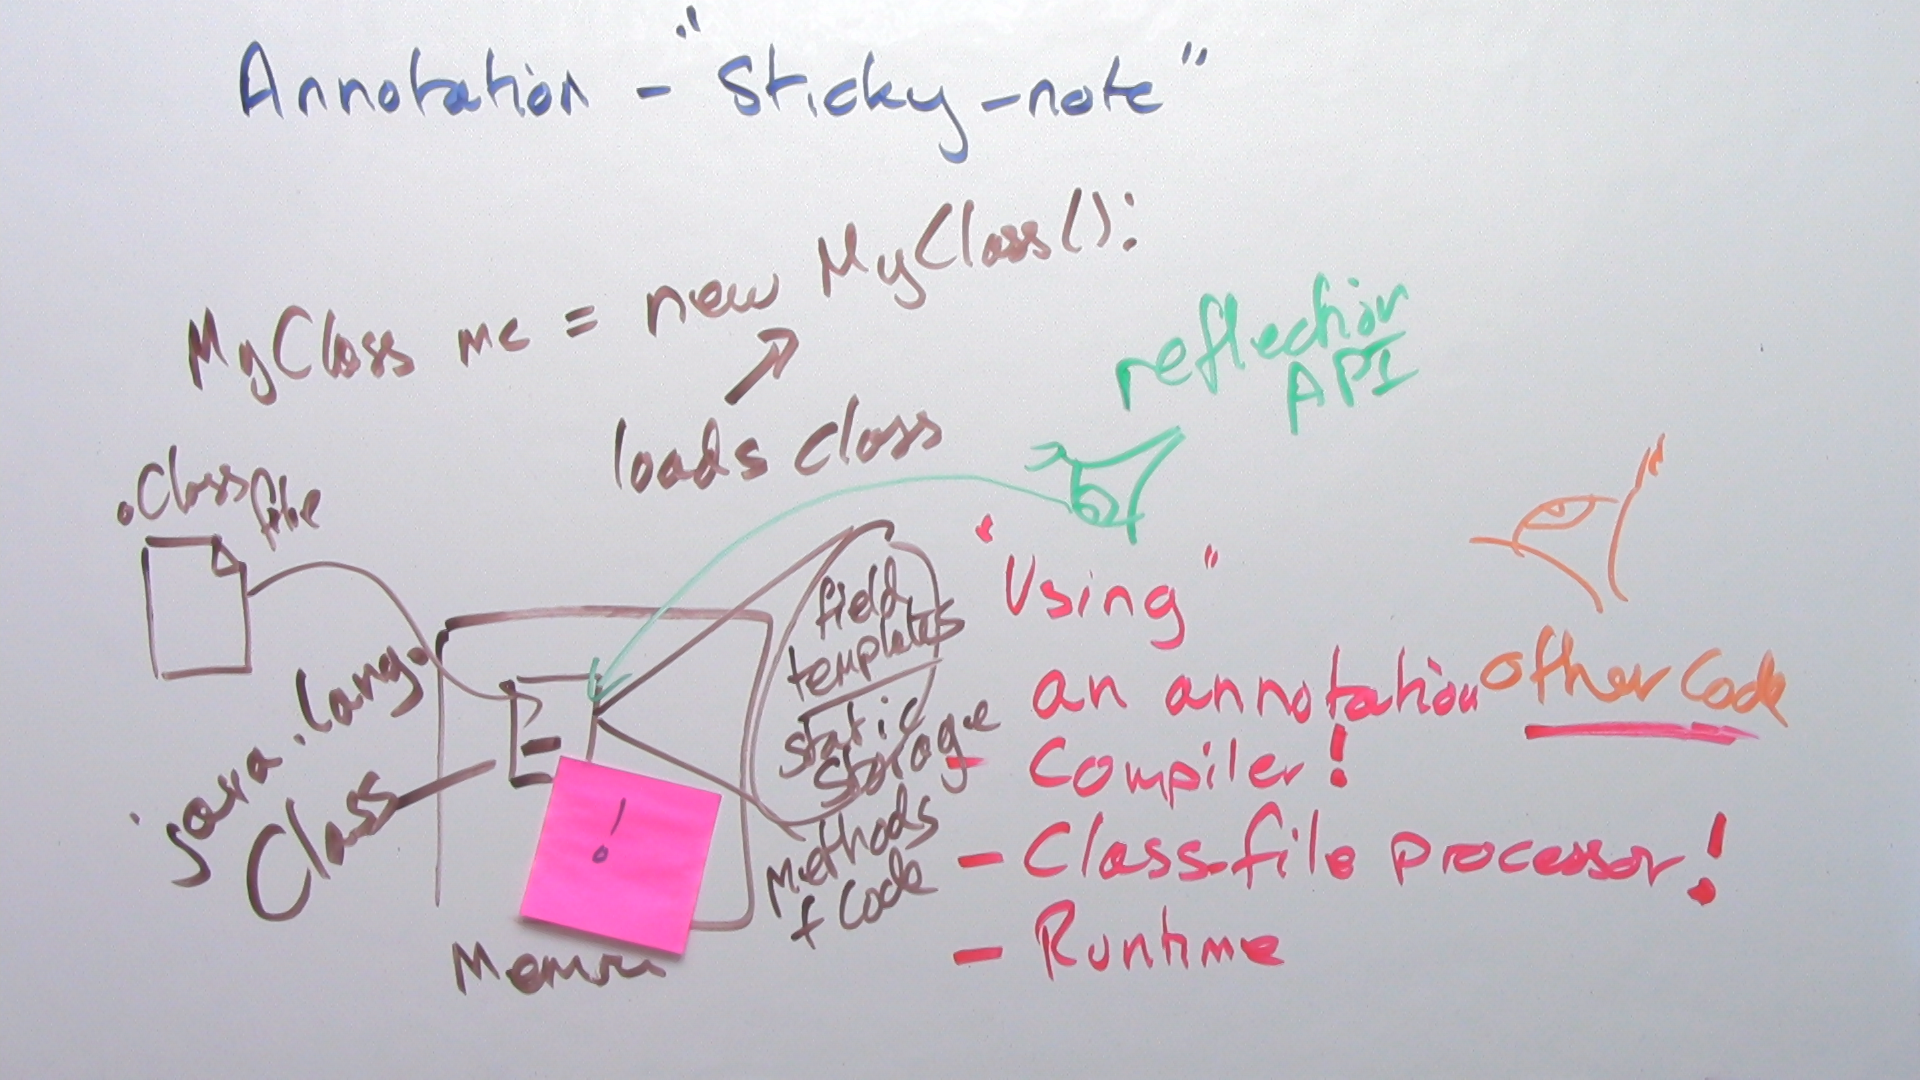 Annotation - "Sticky-note"
MyClass mc = new MyClass():
loads class
reflection
API
.Class file
java.lang.
Class
field
templates
static
storage
methods
+ Code
!
"Using"
an annotation
- Compiler!
- Class-file processor!
- Runtime
other Code